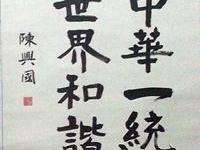 中華一統
世界和諧
陳興國